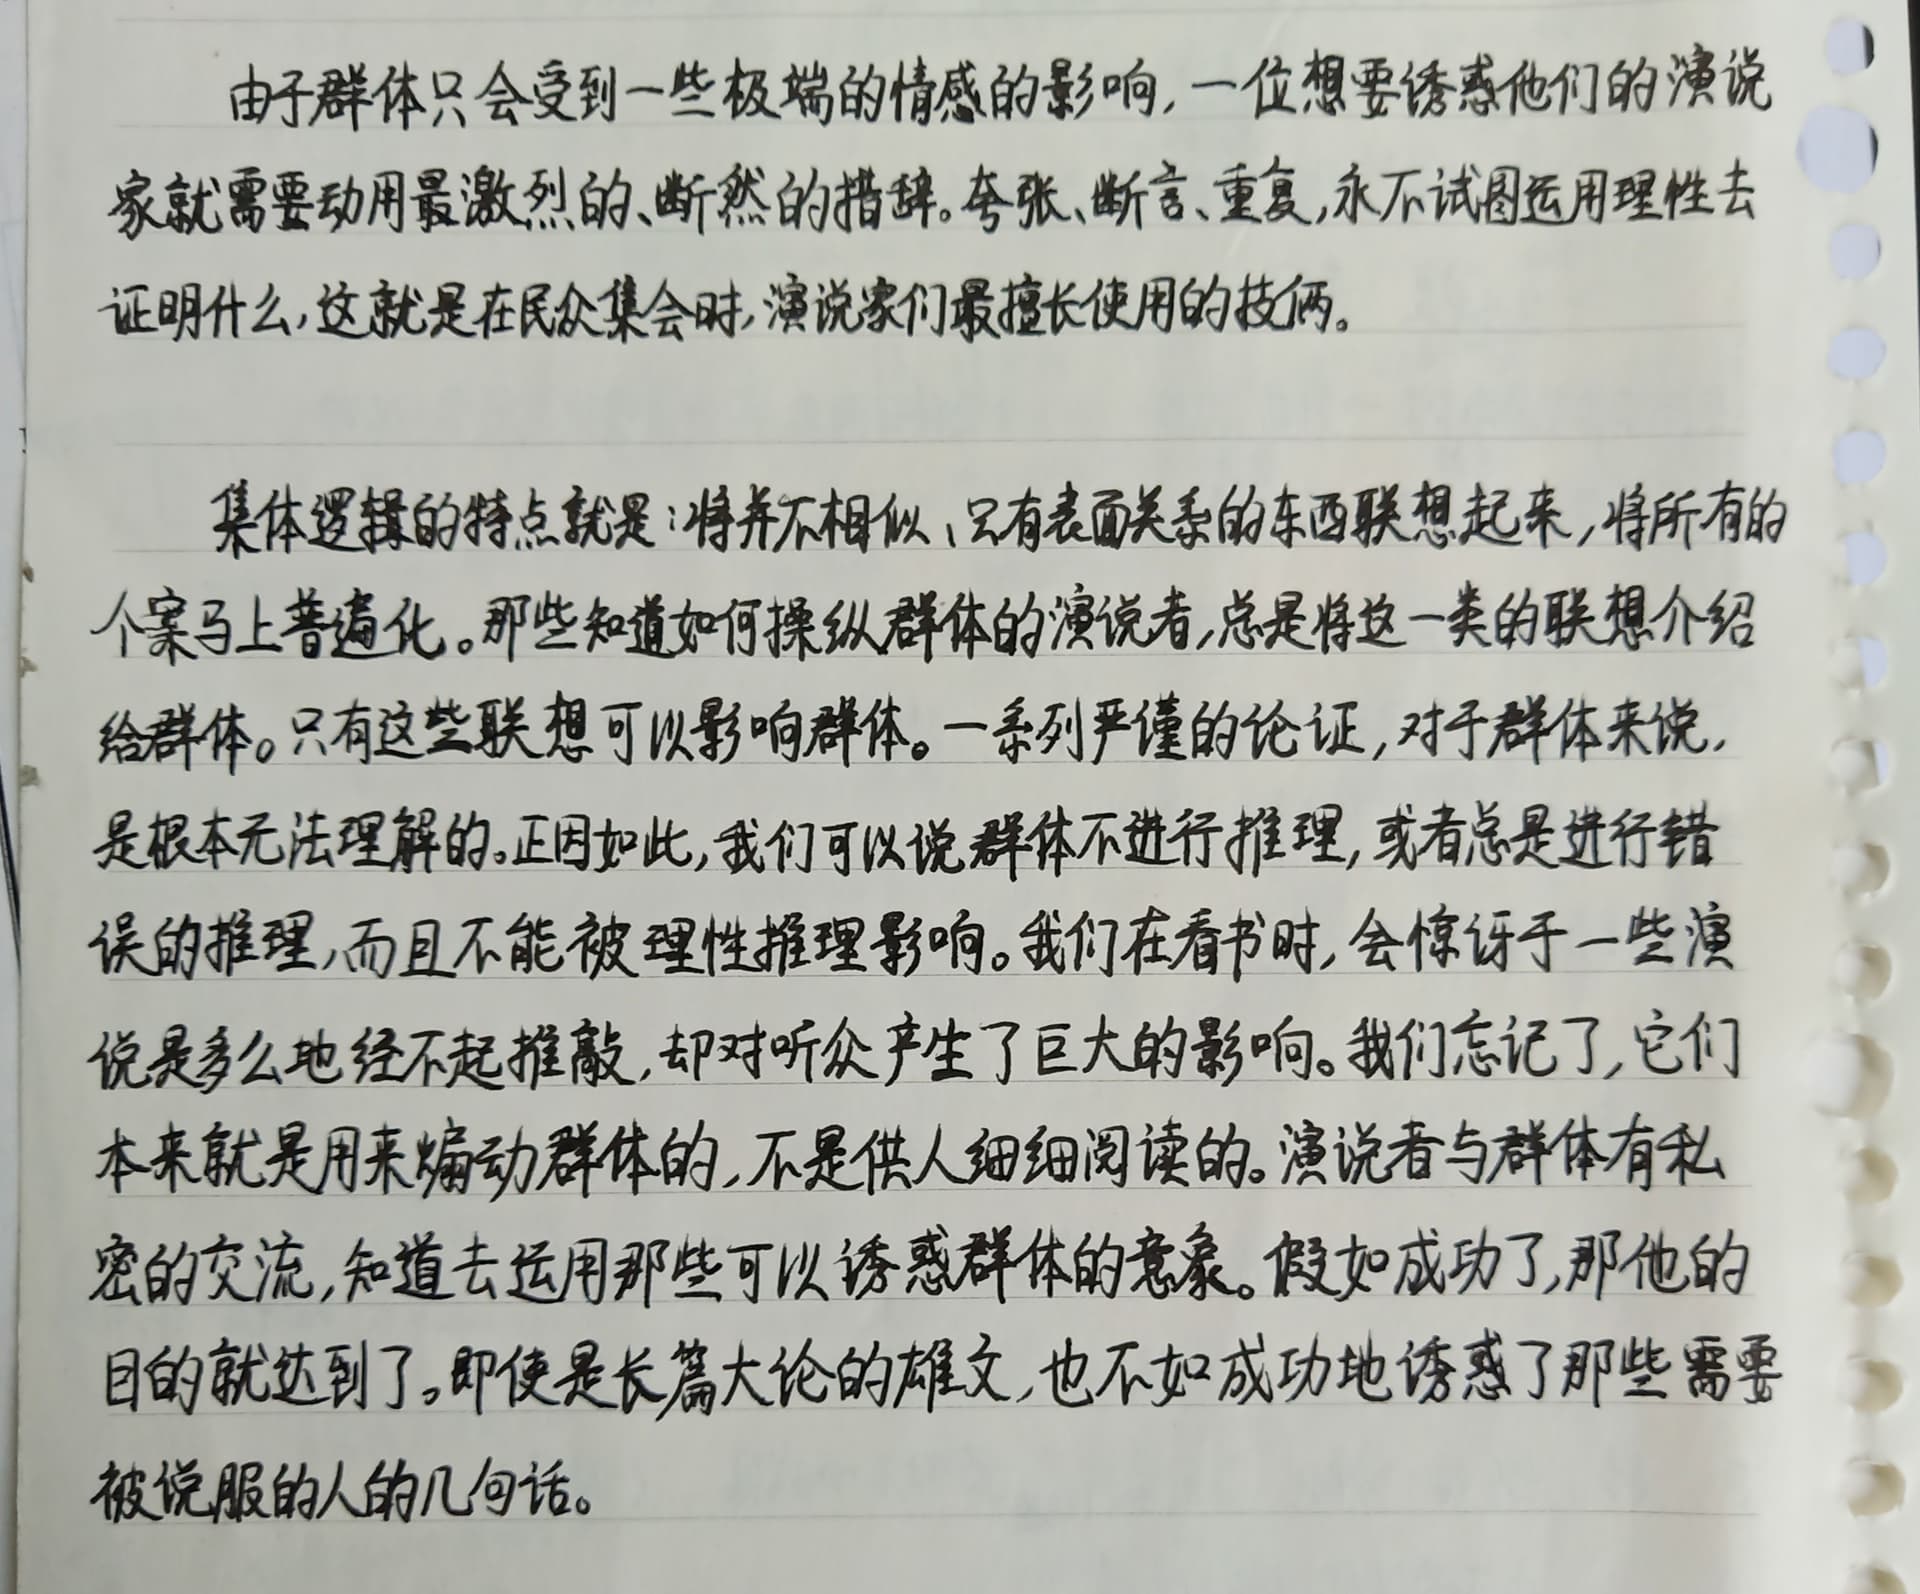 由于群体只会受到一些极端的情感的影响，一位想要诱惑他们的演说
家就需要动用最激烈的、断然的措辞。夸张、断言、重复，永不试图运用理性去
证明什么，这就是在民众集会时，演说家们最擅长使用的技俩。
集体逻辑的特点就是：将并不相似、只有表面关系的东西联想起来，将所有的
个案马上普遍化。那些知道如何操纵群体的演说者，总是将这一类的联想介绍
给群体。只有这些联想可以影响群体。一系列严谨的论证，对于群体来说，
是根本无法理解的。正因如此，我们可以说群体不进行推理，或者总是进行错
误的推理，而且不能被理性推理影响。我们在看书时，会惊讶于一些演
说是多么地经不起推敲，却对听众产生了巨大的影响。我们忘记了，它们
本来就是用来煽动群体的，不是供人细细阅读的。演说者与群体有私
密的交流，知道去运用那些可以诱惑群体的意象。假如成功了，那他的
目的就达到了。即使是长篇大论的雄文，也不如成功地诱惑了那些需要
被说服的人的几句话。